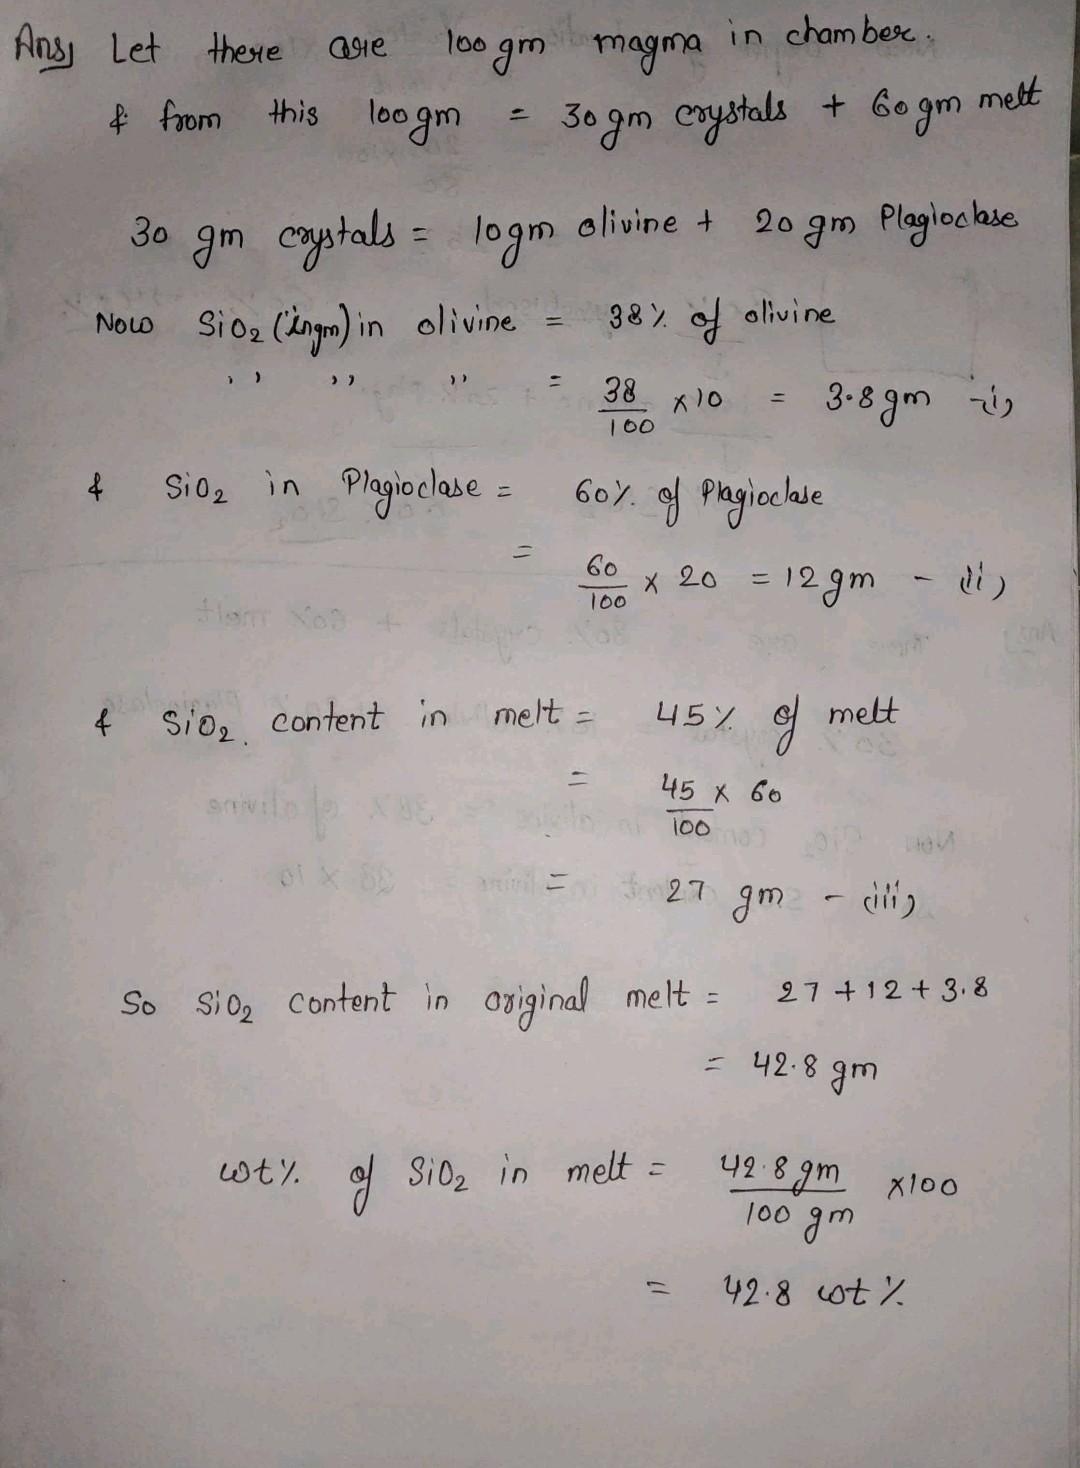 Ans) Let there are 100 gm magma in chamber.
& from this 100gm = 30 gm crystals + 60 gm melt
30 gm crystals = 10gm olivine + 20 gm Plagioclase
Now SiO₂ (ingm) in olivine = 38% of olivine
,, ,, ,, = 38/100 x 10 = 3.8 gm -i)
& SiO₂ in Plagioclase = 60% of Plagioclase
= 60/100 x 20 = 12 gm - (ii)
& SiO₂. content in melt = 45% of melt
= 45/100 x 60
= 27 gm - (iii)
So SiO₂ content in original melt = 27 + 12 + 3.8
= 42.8 gm
wt% of SiO₂ in melt = 42.8 gm/100 gm x100
= 42.8 wt %